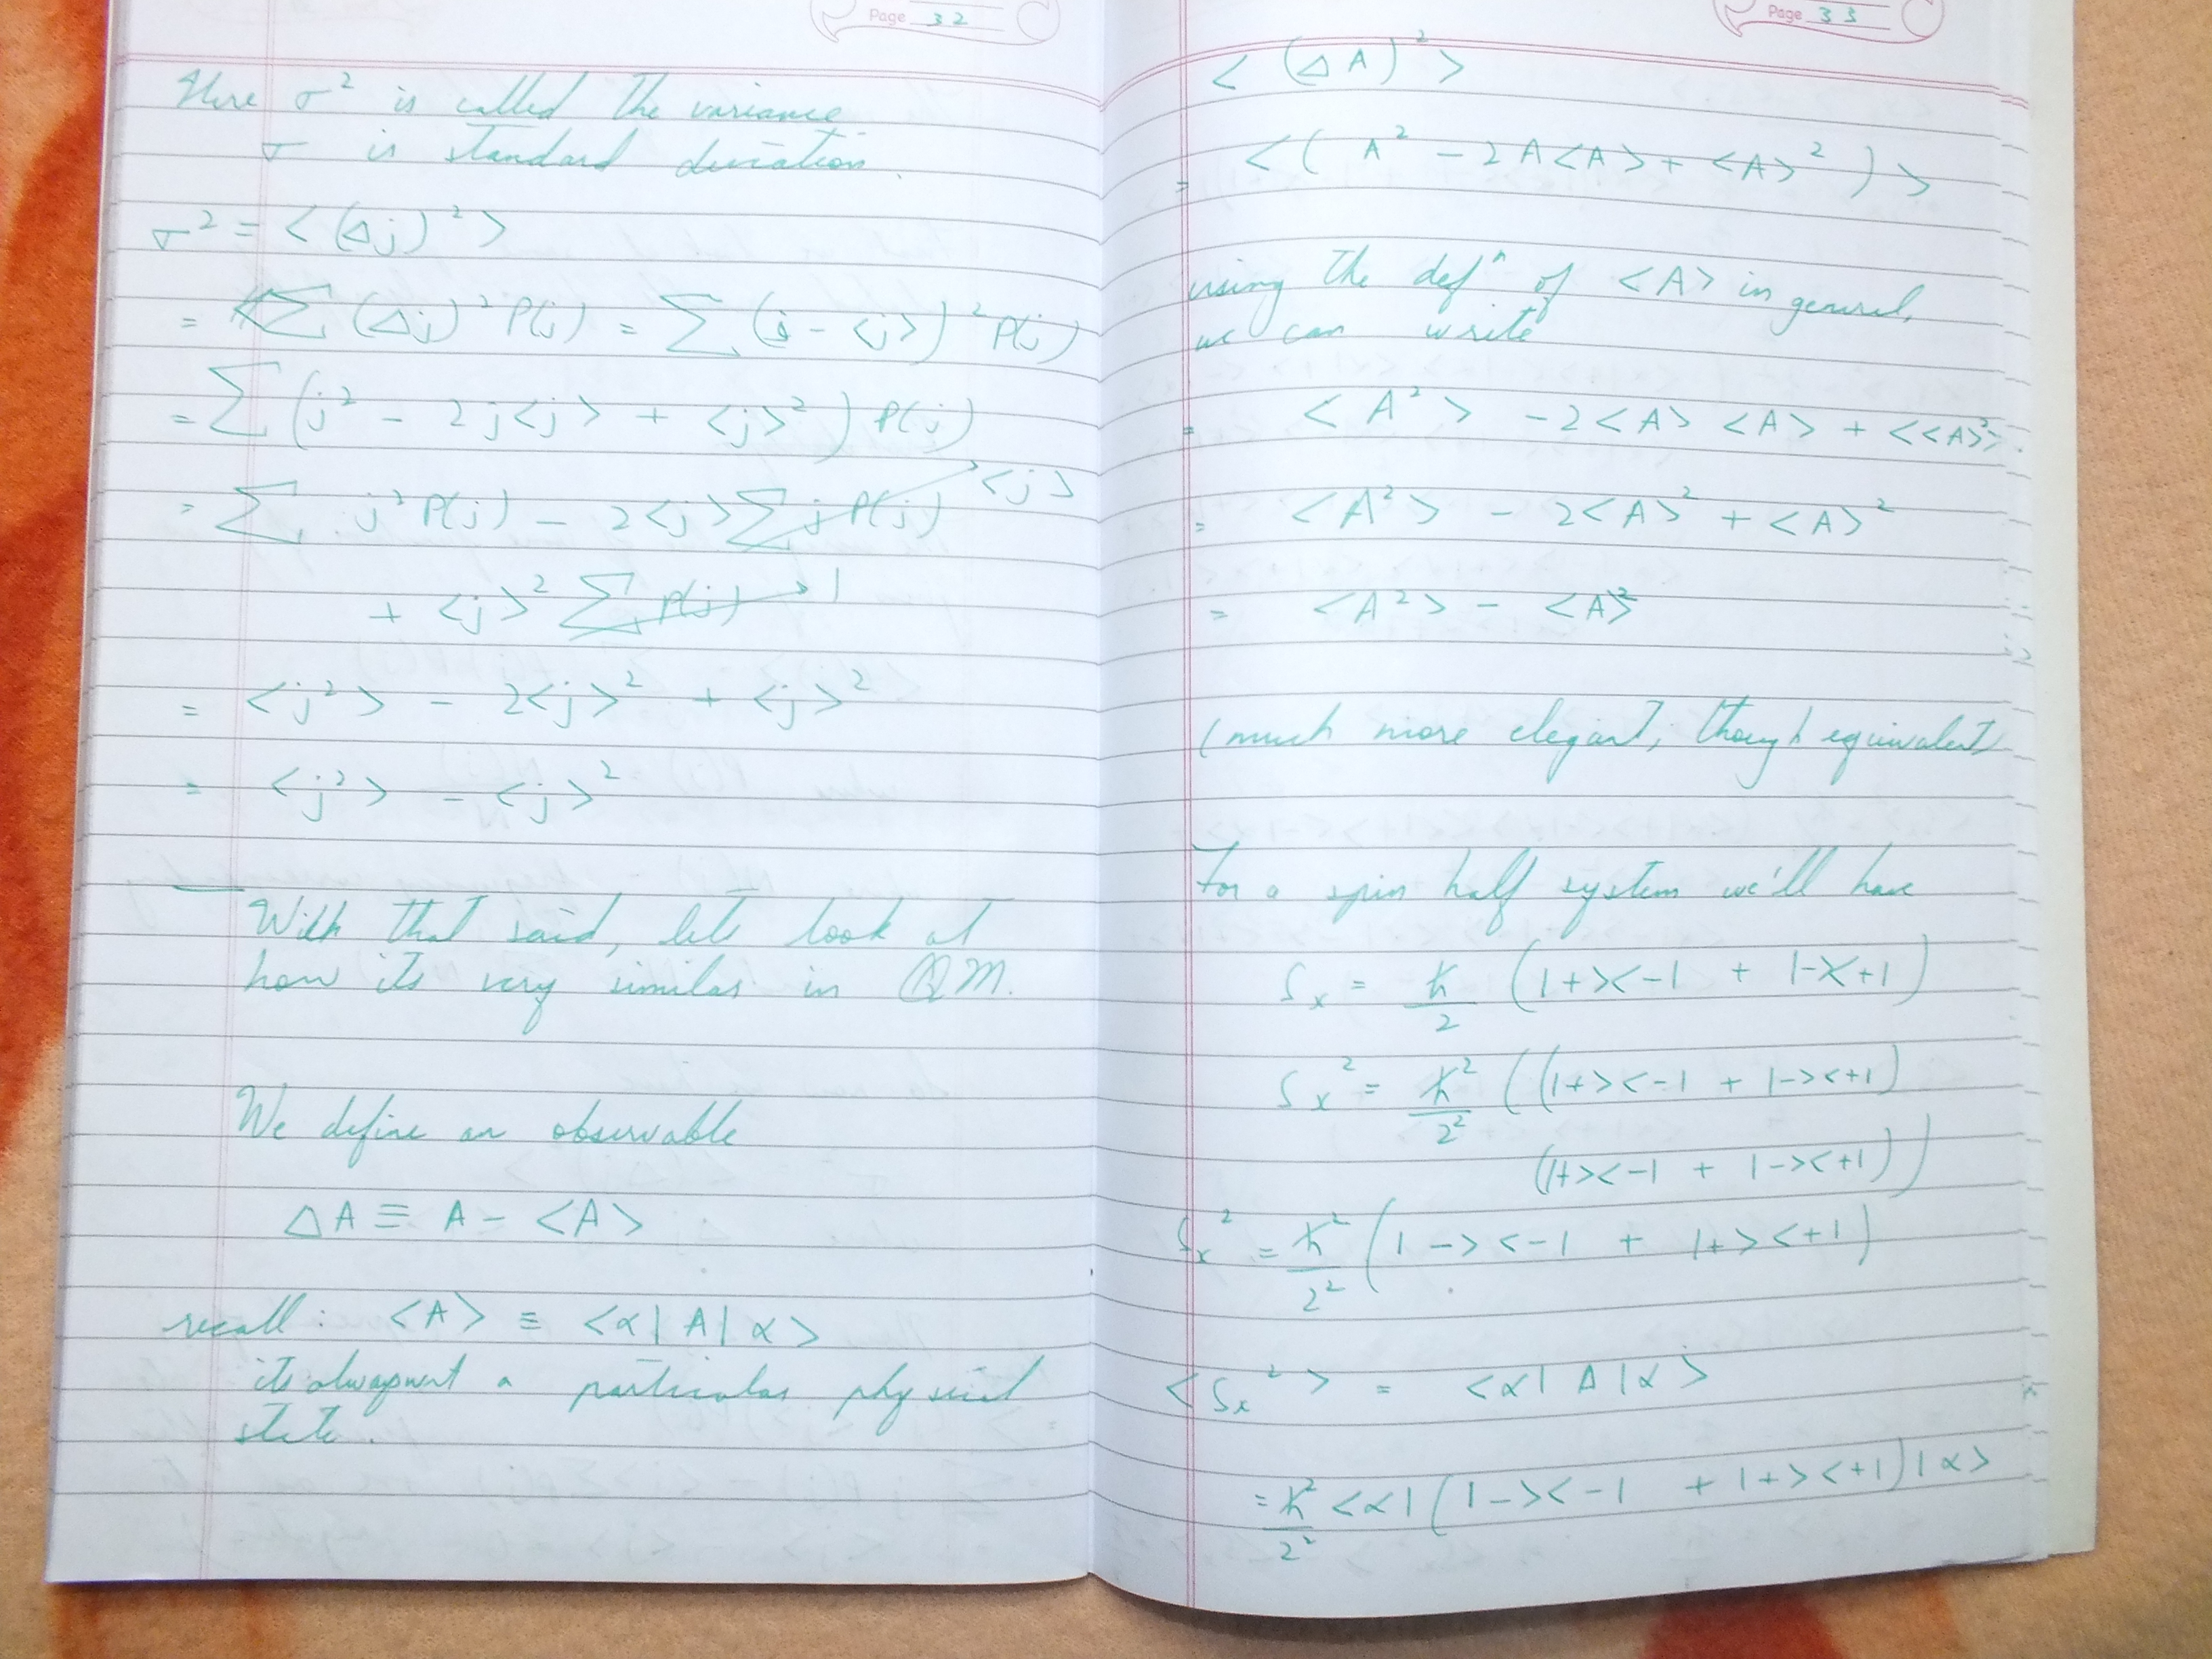 Page 32
Here σ² is called the variance
σ is standard deviation.
σ² = <(Δj)²>
= Σ (Δj)² P(j) = Σ (j - <j>)² P(j)
= Σ (j² - 2j<j> + <j>²) P(j)
= Σ j² P(j) - 2<j> Σ j P(j) → <j>
+ <j>² Σ P(j) → 1
= <j²> - 2<j>² + <j>²
= <j²> - <j>²
With that said, lets look at
how its very similar in QM.
We define an observable
ΔA ≡ A - <A>
recall: <A> ≡ <α|A|α>
its always wrt a particular physical
state.
Page 33
<(ΔA)²>
= <(A² - 2A<A> + <A>²)>
using the defⁿ of <A> in general,
we can write
= <A²> - 2<A><A> + <<A>²>.
= <A²> - 2<A>² + <A>²
= <A²> - <A>²
(much more elegant, though equivalent)
For a spin half system we'll have
Sx = ħ/2 (|+><-| + |-><+|)
Sx² = ħ²/2² ((|+><-| + |-><+|)
(|+><-| + |-><+|))
Sx² = ħ²/2² (|-><-| + |+><+|)
<Sx²> = <α|A|α>
= ħ²/2² <α|(|-><-| + |+><+|)|α>